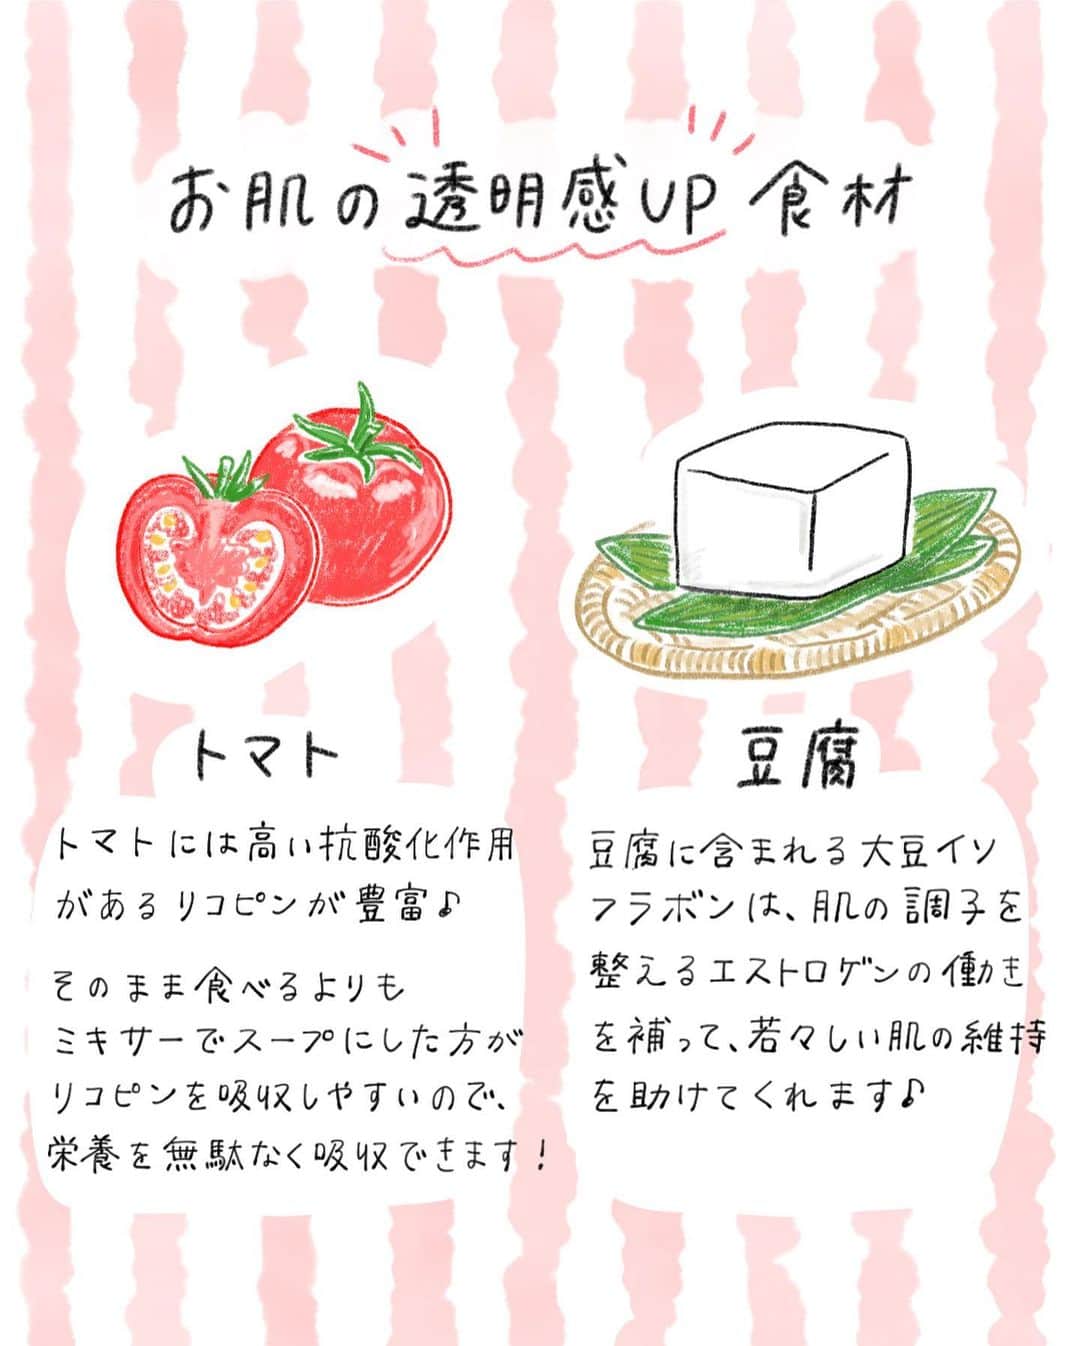 お肌の透明感UP食材
トマト
トマトには高い抗酸化作用
があるリコピンが豊富♪
そのまま食べるよりも
ミキサーでスープにした方が
リコピンを吸収しやすいので、
栄養を無駄なく吸収できます！
豆腐
豆腐に含まれる大豆イソ
フラボンは、肌の調子を
整えるエストロゲンの働き
を補って、若々しい肌の維持
を助けてくれます♪